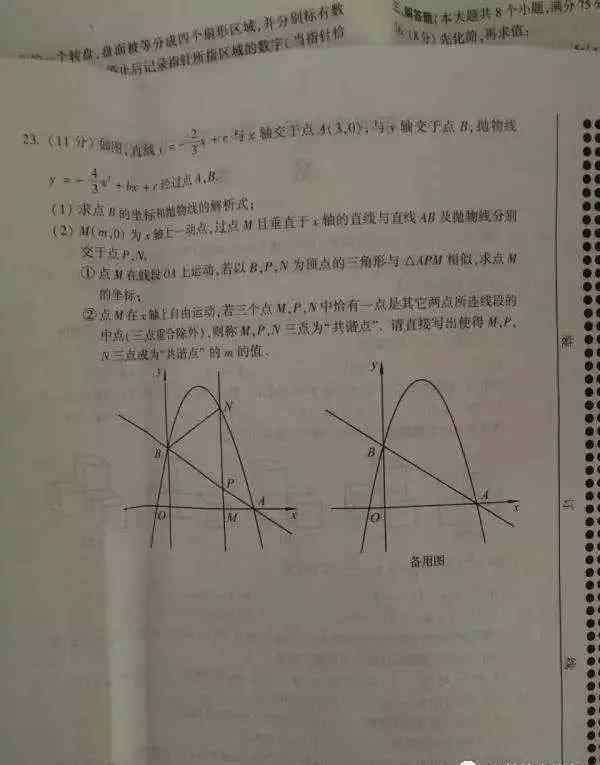 一个转盘,盘面被等分成四个扇形区域,并分别标有数
停止后记录指针所指区域的数字(当指针恰
三、解答题:本大题共8个小题,满分75分
(8分)先化简,再求值:
23.(11分)如图,直线y=-2/3x+c与x轴交于点A(3,0),与y轴交于点B,抛物线
y=-4/3x²+bx+c经过点A,B.
(1)求点B的坐标和抛物线的解析式;
(2)M(m,0)为x轴上一动点,过点M且垂直于x轴的直线与直线AB及抛物线分别
交于点P,N.
①点M在线段OA上运动,若以B,P,N为顶点的三角形与△APM相似,求点M
的坐标;
②点M在x轴上自由运动,若三个点M,P,N中恰有一点是其它两点所连线段的
中点(三点重合除外),则称M,P,N三点为“共谐点”.请直接写出使得M,P,
N三点成为“共谐点”的m的值.
y
N
B
P
A
O
M
x
y
B
A
O
x
备用图
订
线